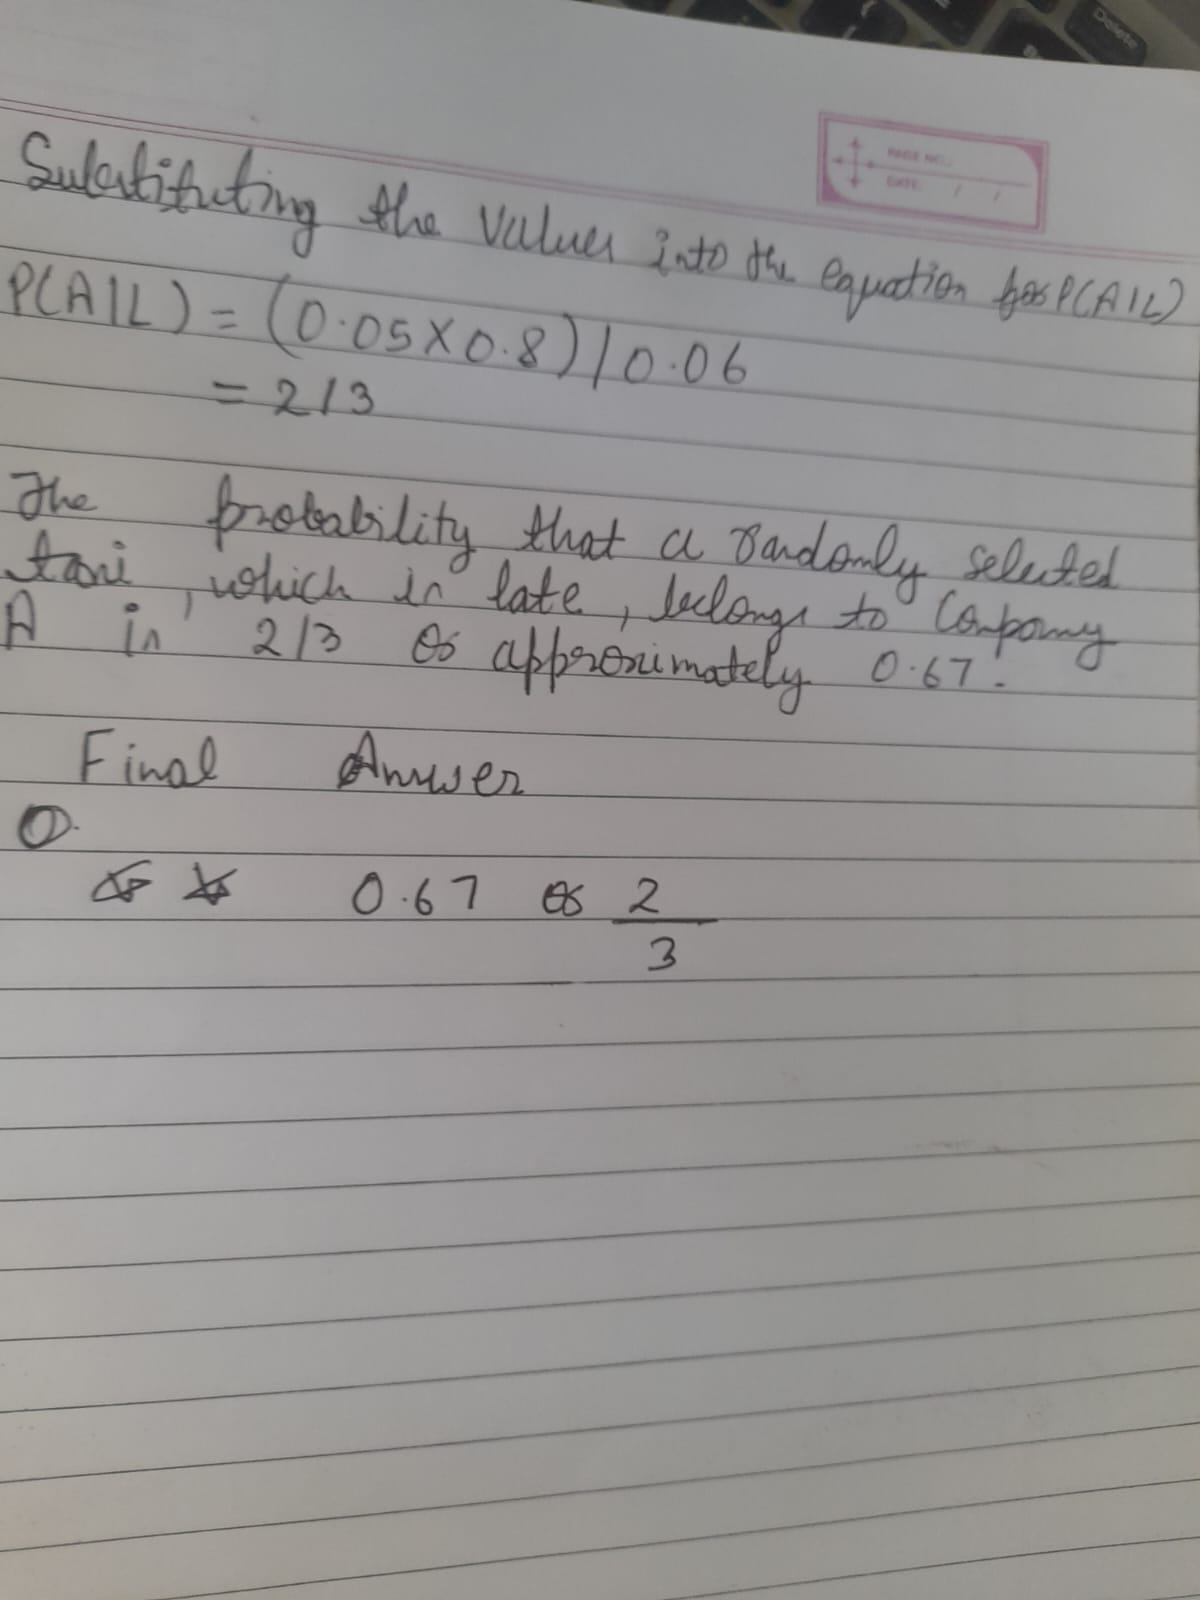 Delete
PAGE NO.:
DATE: / /
Substituting the values into the equation for P(A|L)
P(A|L) = (0.05×0.8)/0.06
= 2/3
The probability that a randomly selected
taxi, which is late, belongs to Company
A is 2/3 or approximately 0.67.
Final Answer
0.67 or 2/3